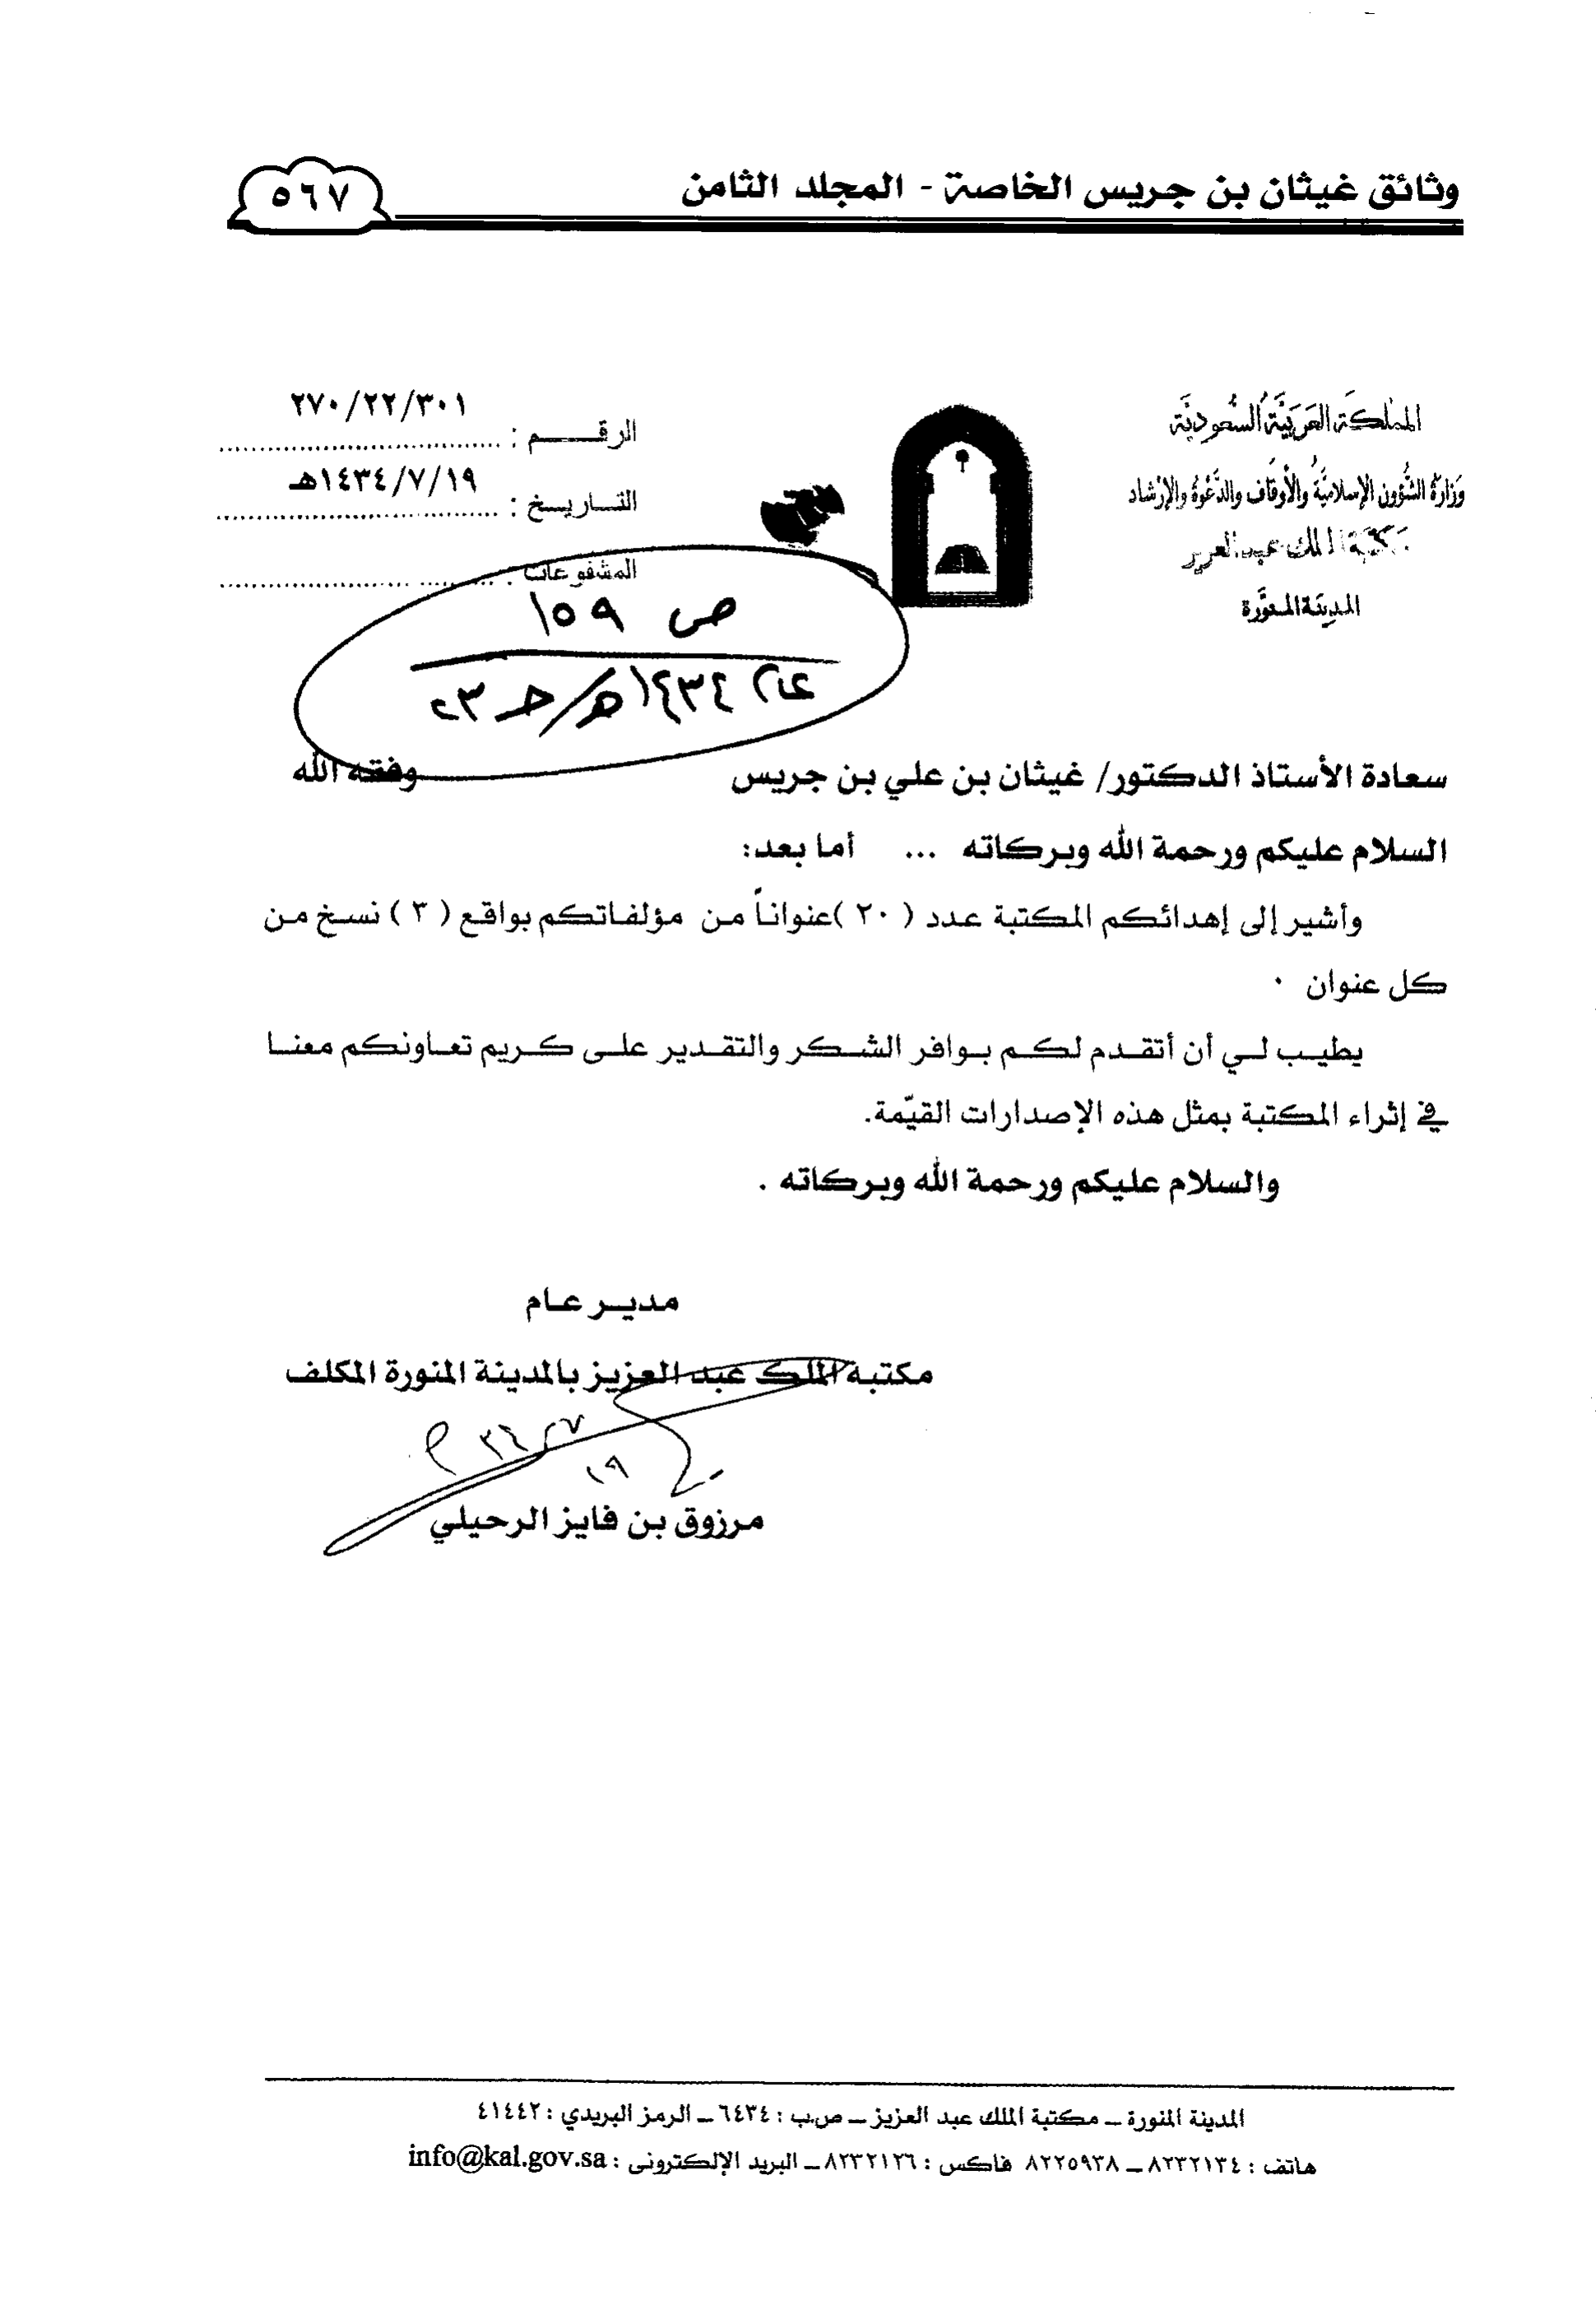 وثائق غيثان بن جريس الخاصة - المجلد الثامن
٥٦٧
المملكة العربية السعودية
وزارة الشؤون الإسلامية والأوقاف والدعوة والإرشاد
مكتبة الملك عبد العزيز
المدينة المنورة
الرقـــــم : ٢٧٠/٢٢/٣٠١
التـاريـخ : ١٤٣٤/٧/١٩هـ
المشفوعات :
ص ١٥٩
عام ١٤٣٤هـ/ حـ ٢٣
سعادة الأستاذ الدكتور/ غيثان بن علي بن جريس وفقه الله
السلام عليكم ورحمة الله وبركاته ... أما بعد:
وأشير إلى إهدائكم المكتبة عدد ( ٢٠ )عنواناً من مؤلفاتكم بواقع ( ٣ ) نسخ من
كل عنوان ٠
يطيب لي أن أتقدم لكم بوافر الشكر والتقدير على كريم تعاونكم معنا
في إثراء المكتبة بمثل هذه الإصدارات القيّمة.
والسلام عليكم ورحمة الله وبركاته .
مدير عام
مكتبة الملك عبد العزيز بالمدينة المنورة المكلف
مرزوق بن فايز الرحيلي
المدينة المنورة ــ مكتبة الملك عبد العزيز ــ ص.ب : ٦٤٣٤ ــ الرمز البريدي : ٤١٤٤٢
هاتف : ٨٢٣٢١٣٤ ــ ٨٢٢٥٩٣٨ فاكس : ٨٢٣٢١٢٦ ــ البريد الإلكتروني : info@kal.gov.sa